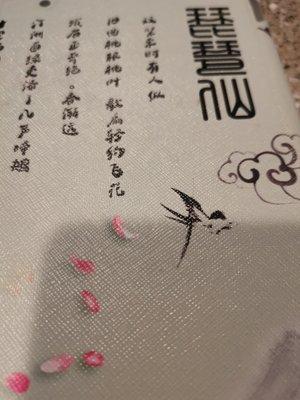 琵琶仙
双桨来时有人似
旧曲桃根桃叶 歌扇轻约飞花
蛾眉正奇绝。春渐远
汀洲自绿更添了几声啼鴂